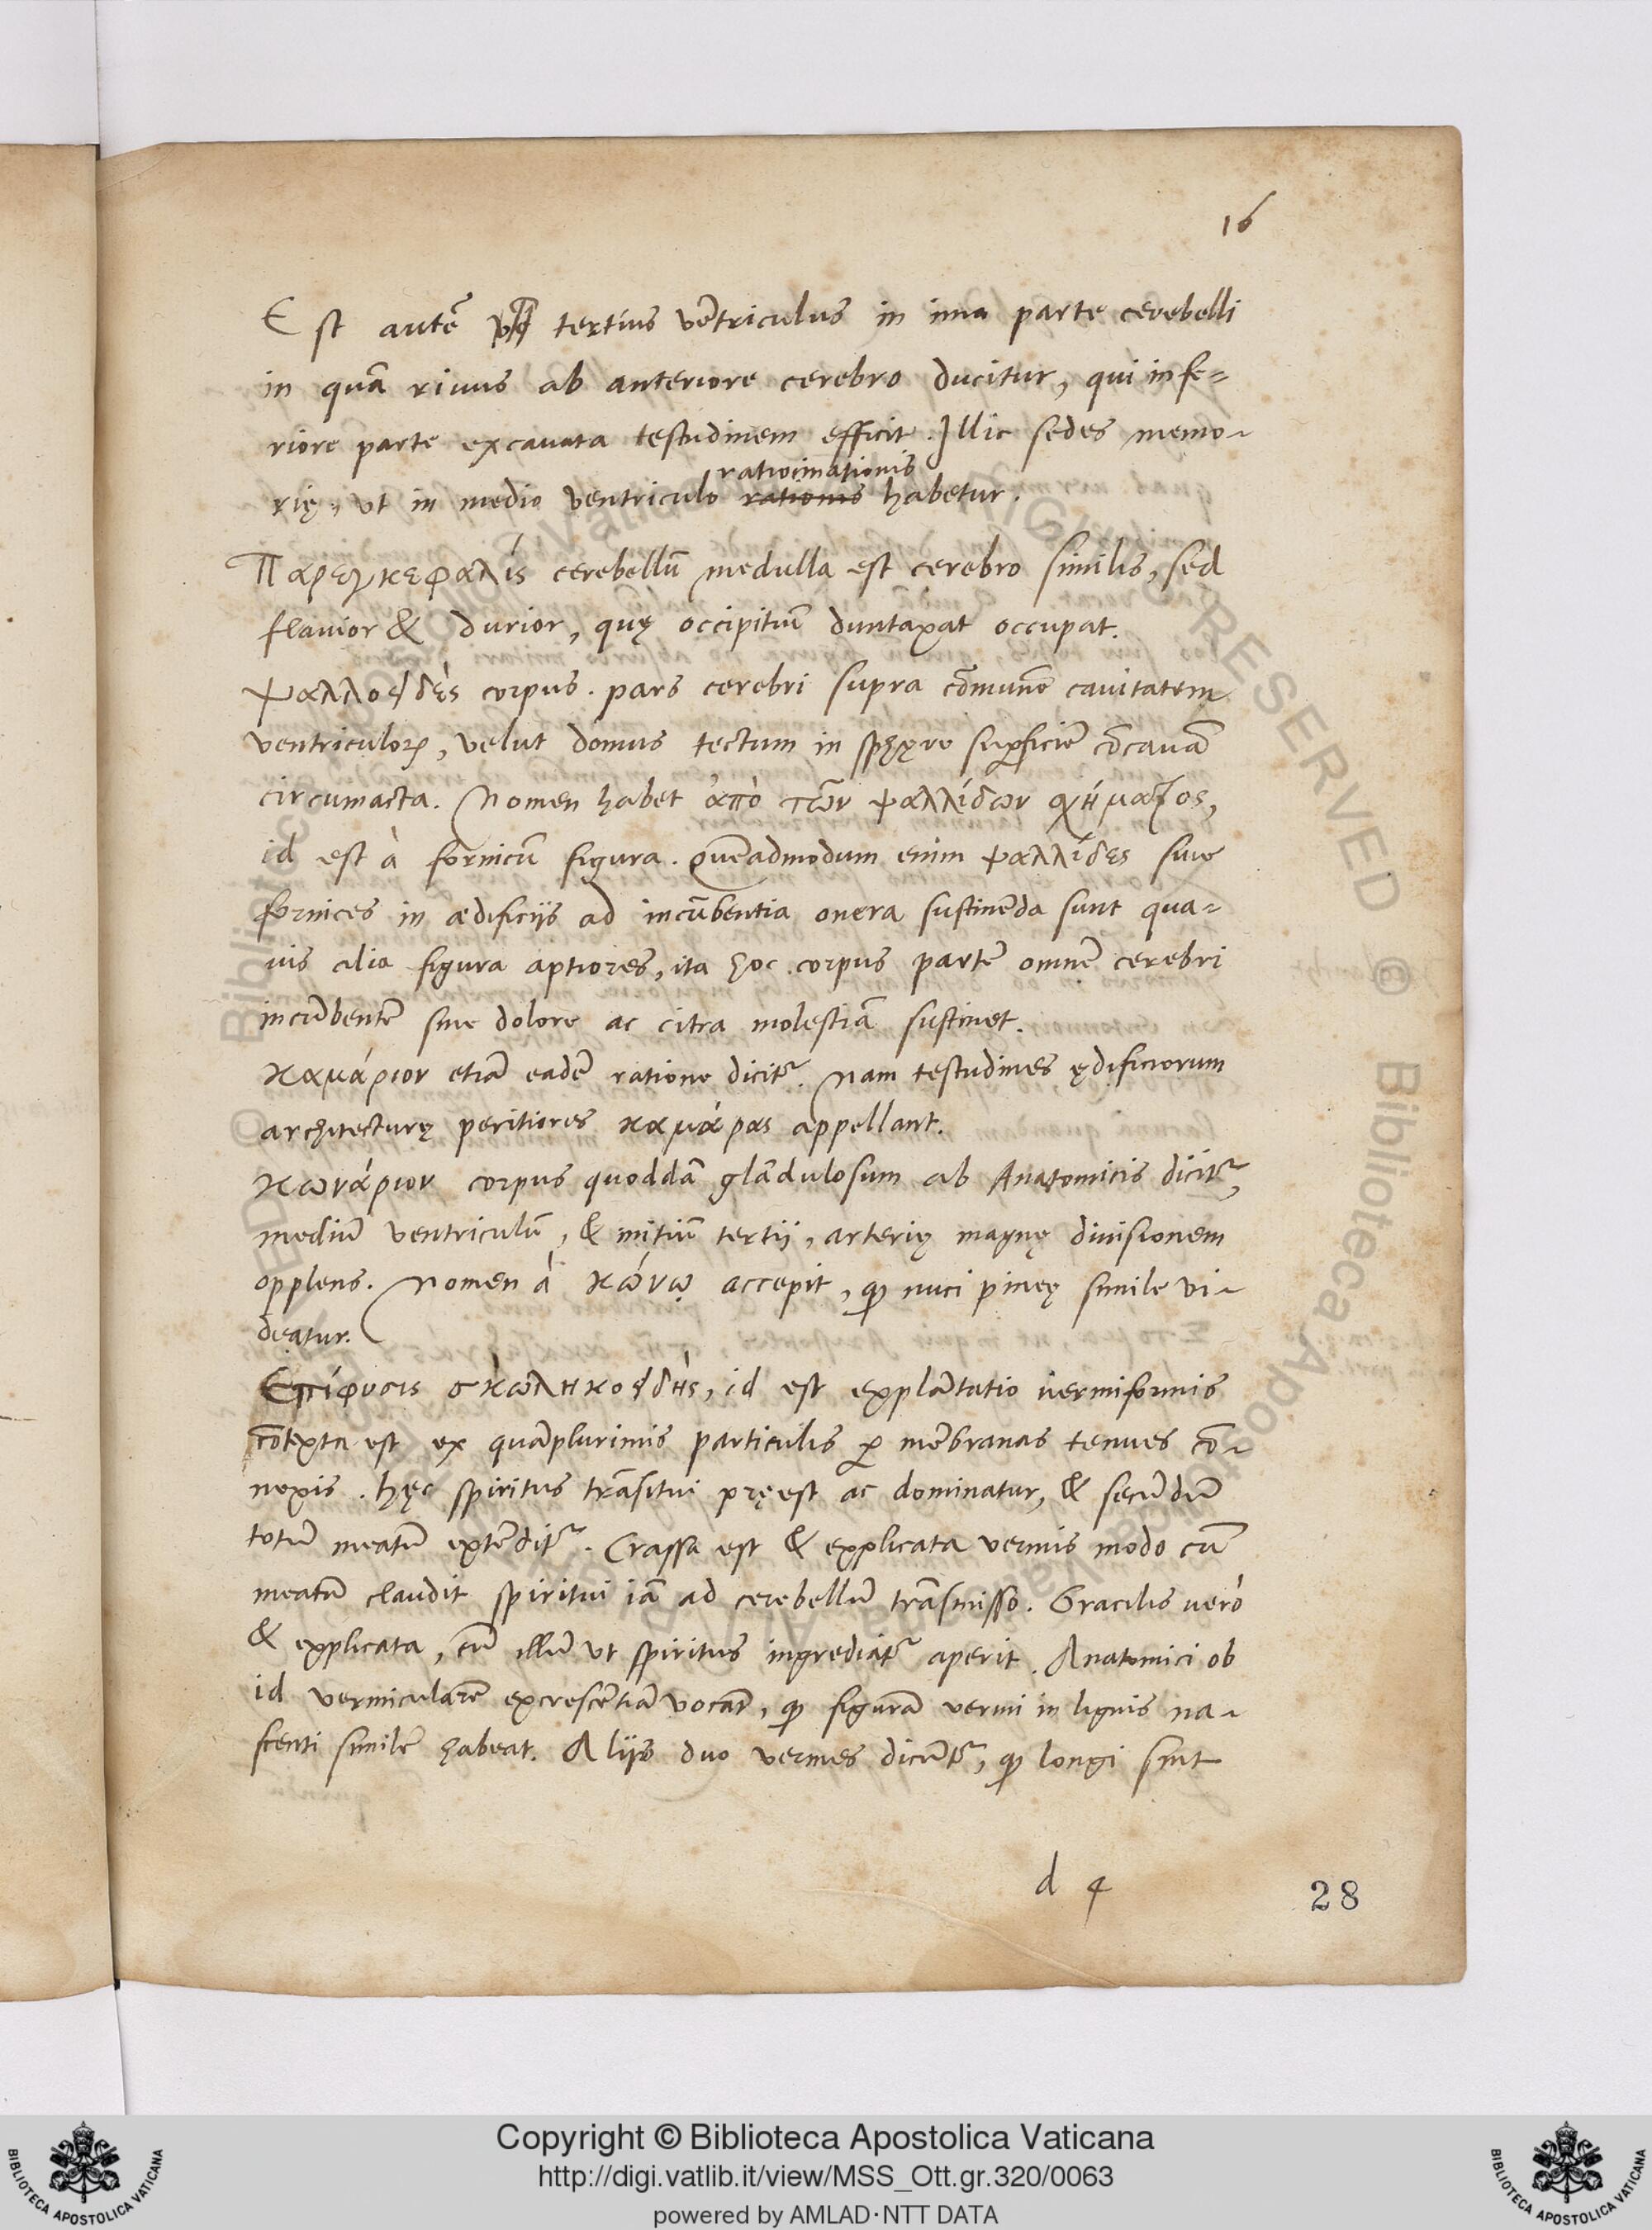 16
Est autē tertius vētriculus in ima parte cerebelli
in quā riuus ab anteriore cerebro ducitur, qui infe=
riore parte excauata testudinem efficit. Illic sedes memo-
ratiocinationis
rię, vt in medio ventriculo rationis habetur.
Παρεγκεφαλίς cerebellū medulla est cerebro similis, sed
flauior & durior, quę occipitiū duntaxat occupat.
ψαλλοειδὲς corpus. pars cerebri supra cōmunē cauitatem
ventriculorꝝ, velut domus tectum in sphęrę suꝑficiē cōcauā
circumacta. Nomen habet ἀπὸ τῶν ψαλλίδων χήματος,
id est à fornicū figura. Quēadmodum enim ψαλλίδες siue
fornices in ædificijs ad incūbentia onera sustinēda sunt qua-
uis alia figura aptiores, ita hoc corpus partē omnē cerebri
incūbentē sine dolore ac citra molestiā sustinet.
καμάριον etiā eadē ratione dicitr̃. Nam testudines ędificiorum
architecturę peritiores καμάρας appellant.
κωνάριον corpus quoddā glādulosum ab Anatomicis dicitr̃,
mediū ventriculū, & initiū tertij, arterię magnę diuisionem
opplens. Nomen à κώνῳ accepit, ꝙ nuci pineę simile vi-
deatur.
Επίφυσις σκωληκοειδὴς, id est explātatio vermiformis
cōtexta est ex quāplurimis particulis ꝑ mēbranas tenues cō-
nexis. hęc spiritus trāsitui pręest ac dominatur, & secūdū
totū meatū extēditr̃. Crassa est & explicata vermis modo cū
meatū claudit spiritui iā ad cerebellū trāsmisso. Gracilis verò
& explicata, cū illū vt spiritus ingrediatr̃ aperit. Anatomici ob
id vermicularē excrescētiā vocāt, ꝙ figurā vermi in lignis na-
scenti similē habeat. Alijs duo vermes dicūtr̃, ꝙ longi sint
d 4
28
Copyright © Biblioteca Apostolica Vaticana
http://digi.vatlib.it/view/MSS_Ott.gr.320/0063
powered by AMLAD·NTT DATA